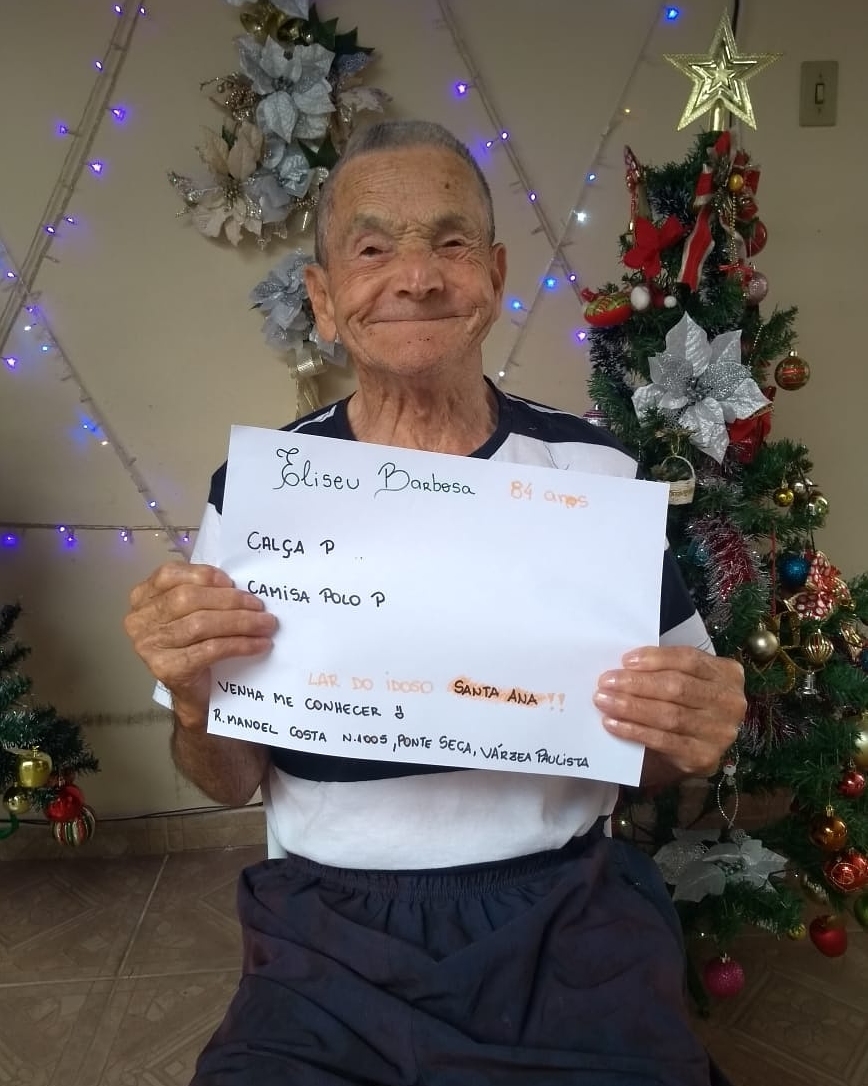 Eliseu Barbosa 84 anos
CALÇA P
CAMISA POLO P
LAR DO iDOSO SANTA ANA !!
VENHA ME CONHECER
R. MANOEL COSTA N.1005, PONTE SECA, VÁRZEA PAULISTA